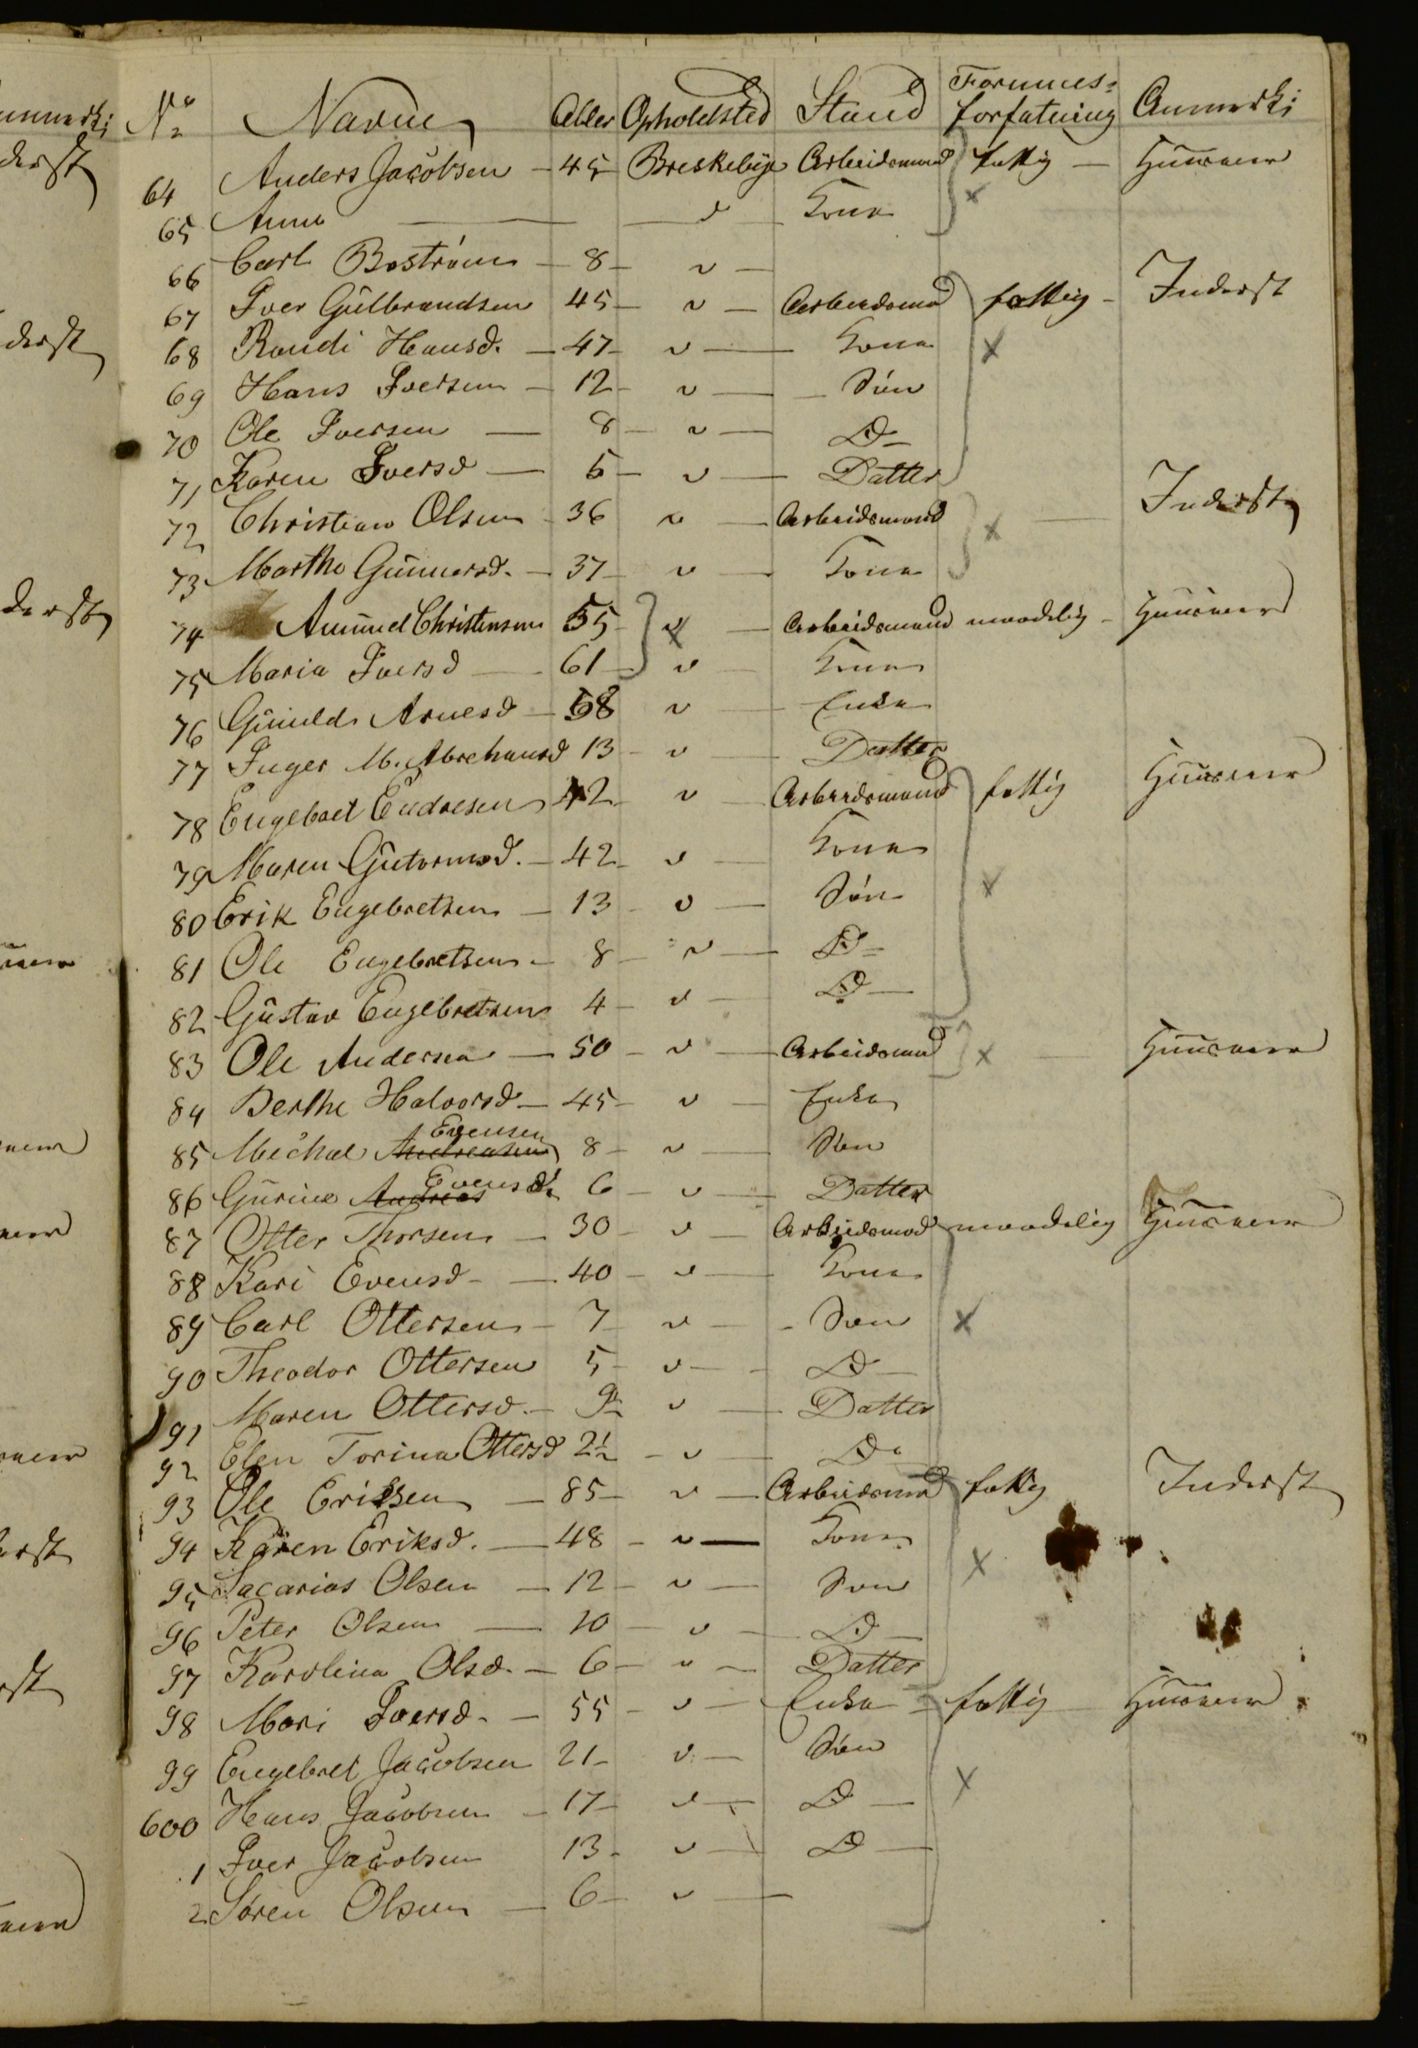 No Navne Alder Opholdsted Stand Formues= forfatning Anmærk:
64 Anders Jacobsen - 45 Breskebye Arbeidsmand fattig - Huuseier
65 Anna — — v Kone
66 Carl Boström - 8 - v -
67 Iver Gulbrandsen 45 - v - Arbeidsmd fattig - Inderst
68 Randi Hansd. - 47 - v - Kone
69 Hans Iversen - 12 - v - Søn
70 Ole Iversen - 8 - v - D-
71 Karen Iversd - 5 - v - Datter
72 Christian Olsen - 36 v - Arbeidsmand — Inderst
73 Marthe Gunnersd. - 37 - v - Kone
74 Amund Christensen 55 - v - Arbeidsmand maadelig - Huuseier
75 Maria Iversd - 61 - v - Kone
76 Gunild Arnesd - 58 v - Enke
77 Inger M. Abrehamsd 13 - v - Datter
78 Engebret Endresen 42 - v - Arbeidsmand fattig Huuseier
79 Maren Gutormsd. - 42 - v - Kone
80 Erik Engebretsen - 13 - v - Søn
81 Ole Engebretsen - 8 - v - D=
82 Gustav Engebretsen 4 - v - D-
83 Ole Andersen - 50 - v - Arbeidsmd — Huuseier
84 Berthe Halvorsd - 45 - v - Enke
85 Michal Andreasen Evensen 8 - v - Søn
86 Gurine Andreas Evensd: 6 - v - Datter
87 Otter Thorsen - 30 - v - Arbeidsmd maadelig Huuseier
88 Kari Evensd - 40 - v - Kone
89 Carl Ottersen - 7 - v - Søn
90 Theodor Ottersen 5 - v - D-
91 Maren Ottersd. - 9 - v - Datter
92 Elen Torina Ottersd 2½ - v - Do
93 Ole Eriksen - 85 - v - Arbeidsmd fattig Inderst
94 Karen Eriksd. - 48 - v - Kone
95 Sacarias Olsen - 12 - v - Søn
96 Peter Olsen - 10 - v - D-
97 Karolina Olsd. - 6 - v - Datter
98 Mari Iversd. - 55 - v - Enke - fattig Huuseier
99 Engebret Jacobsen 21 - v - Søn
600 Hans Jacobsen - 17 - v - D -
1 Iver Jacobsen 13 - v - D -
2 Søren Olsen - 6 - v -